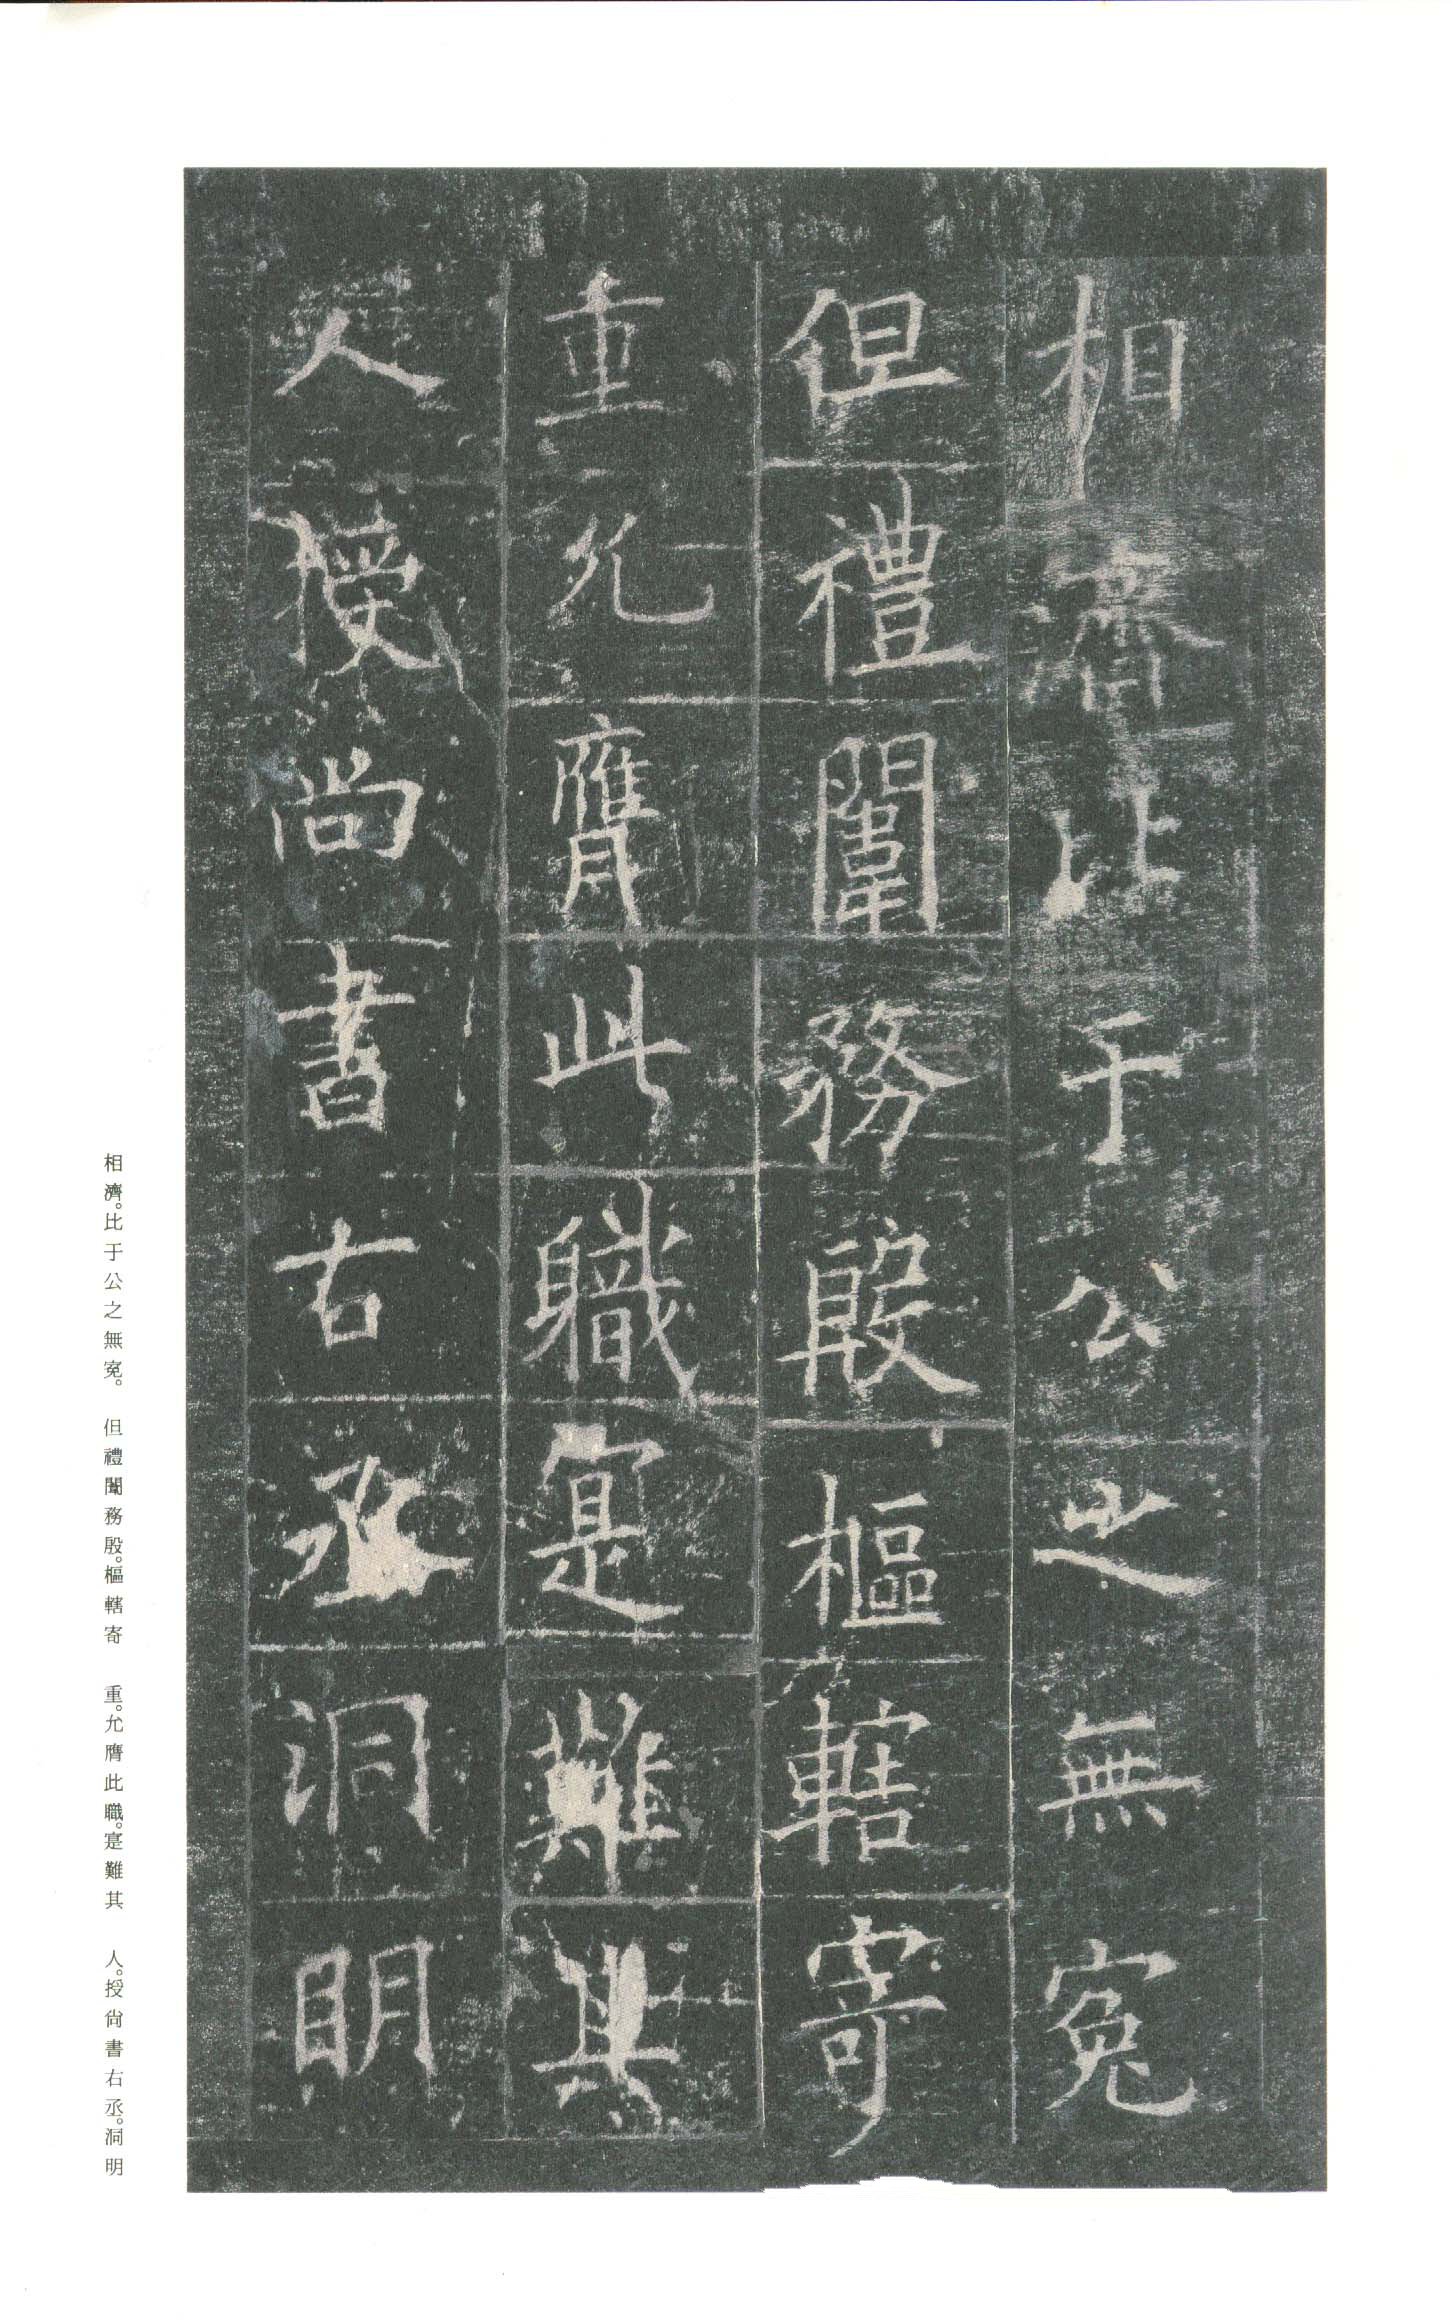 相濟比于公之無寃
但禮闈務殷樞轄寄
重允膺此職寔難其
人授尚書右丞洞明
相濟。比于公之無寃。 但禮闈務殷。樞轄寄 重。允膺此職。寔難其 人。授尚書右丞。洞明